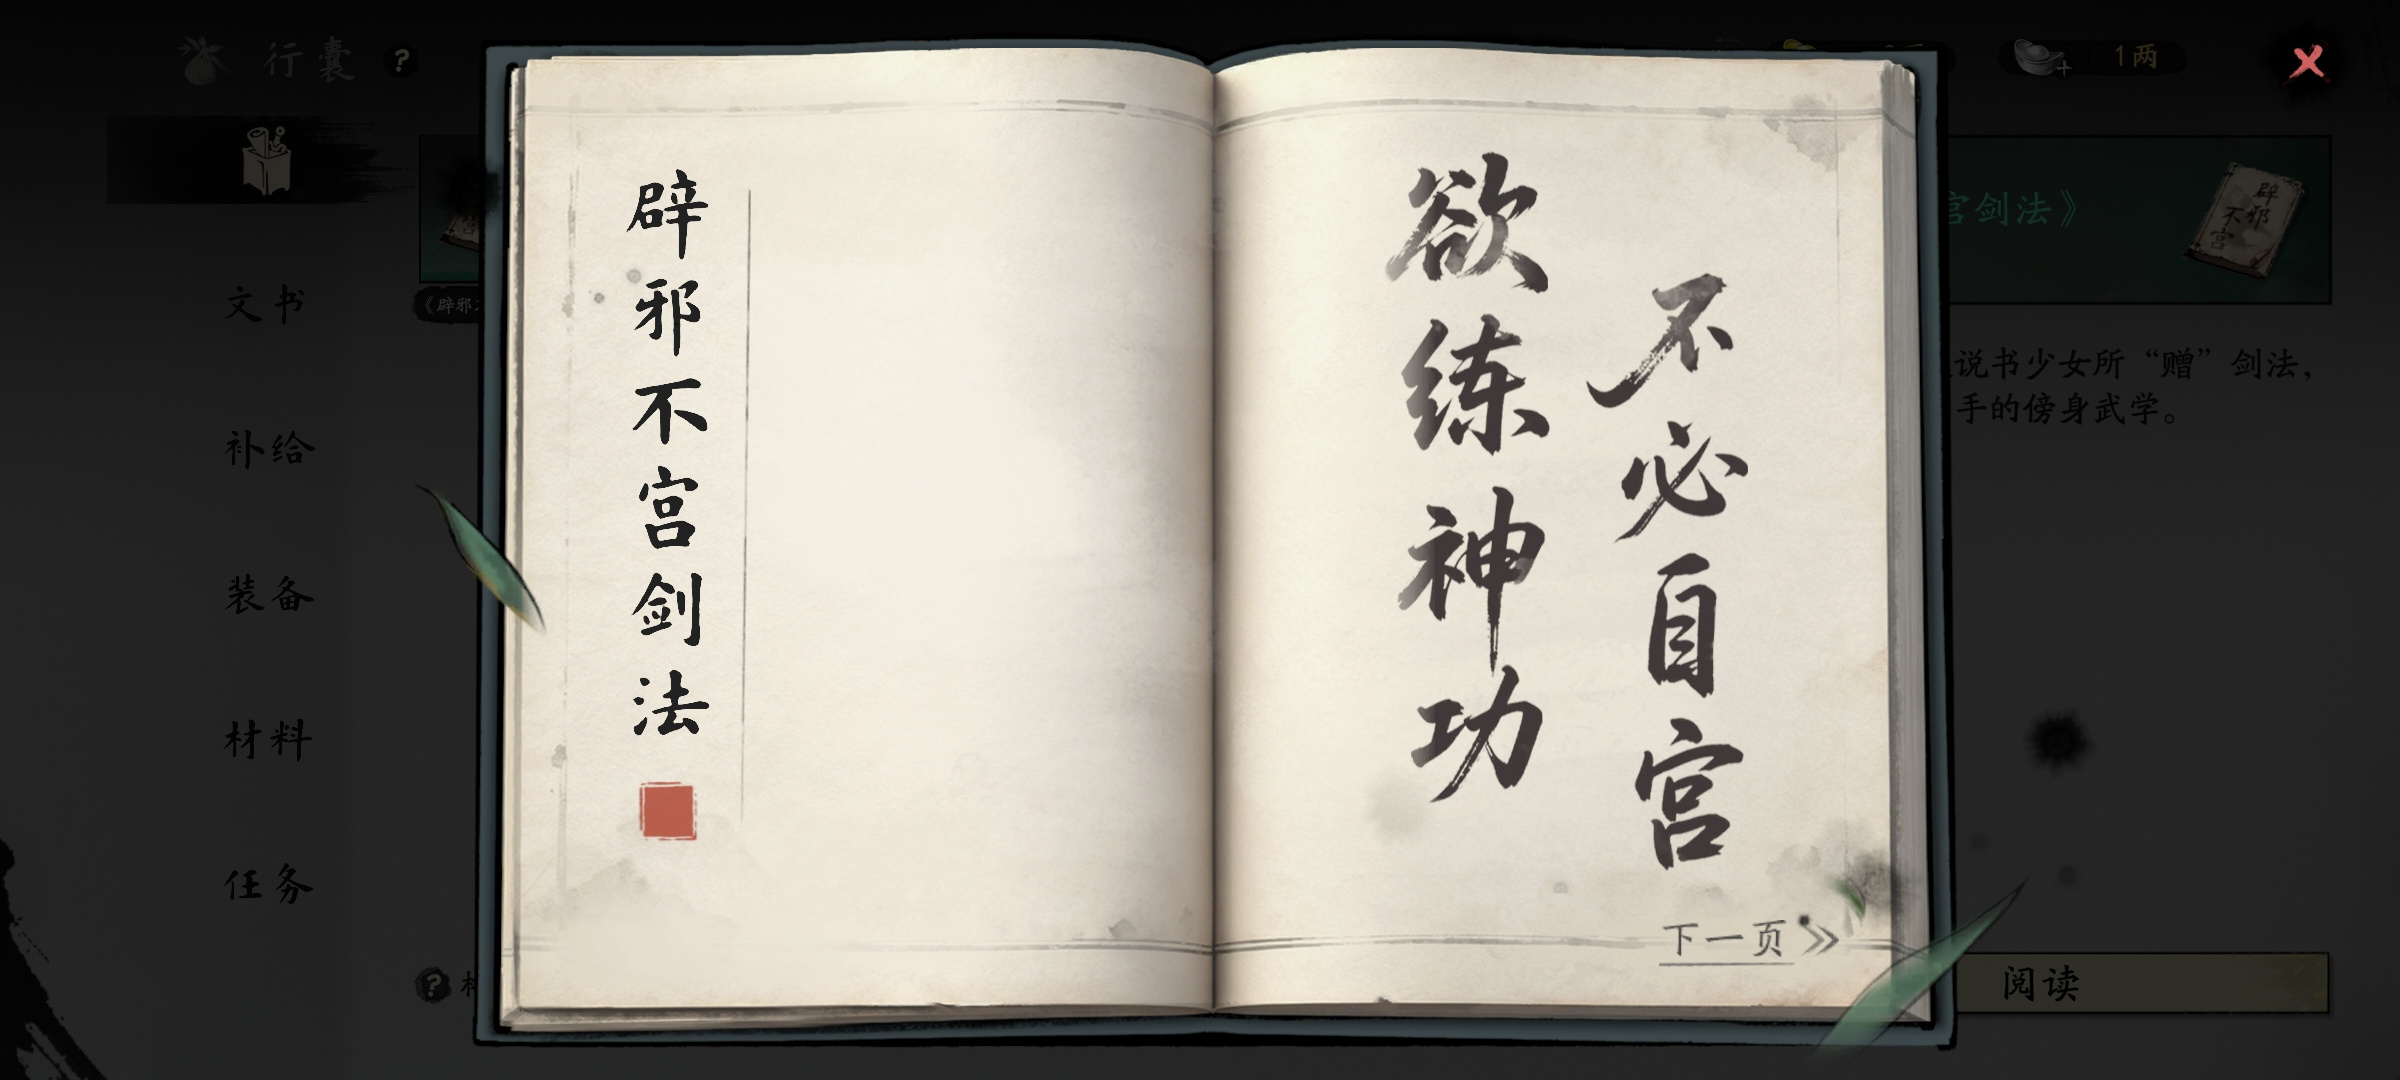 行囊
?
1两
文书
补给
装备
材料
任务
《辟邪
辟邪不宫剑法
欲练神功
不必自宫
下一页
宫剑法》
辟邪不宫
说书少女所“赠”剑法，
手的傍身武学。
?
阅读